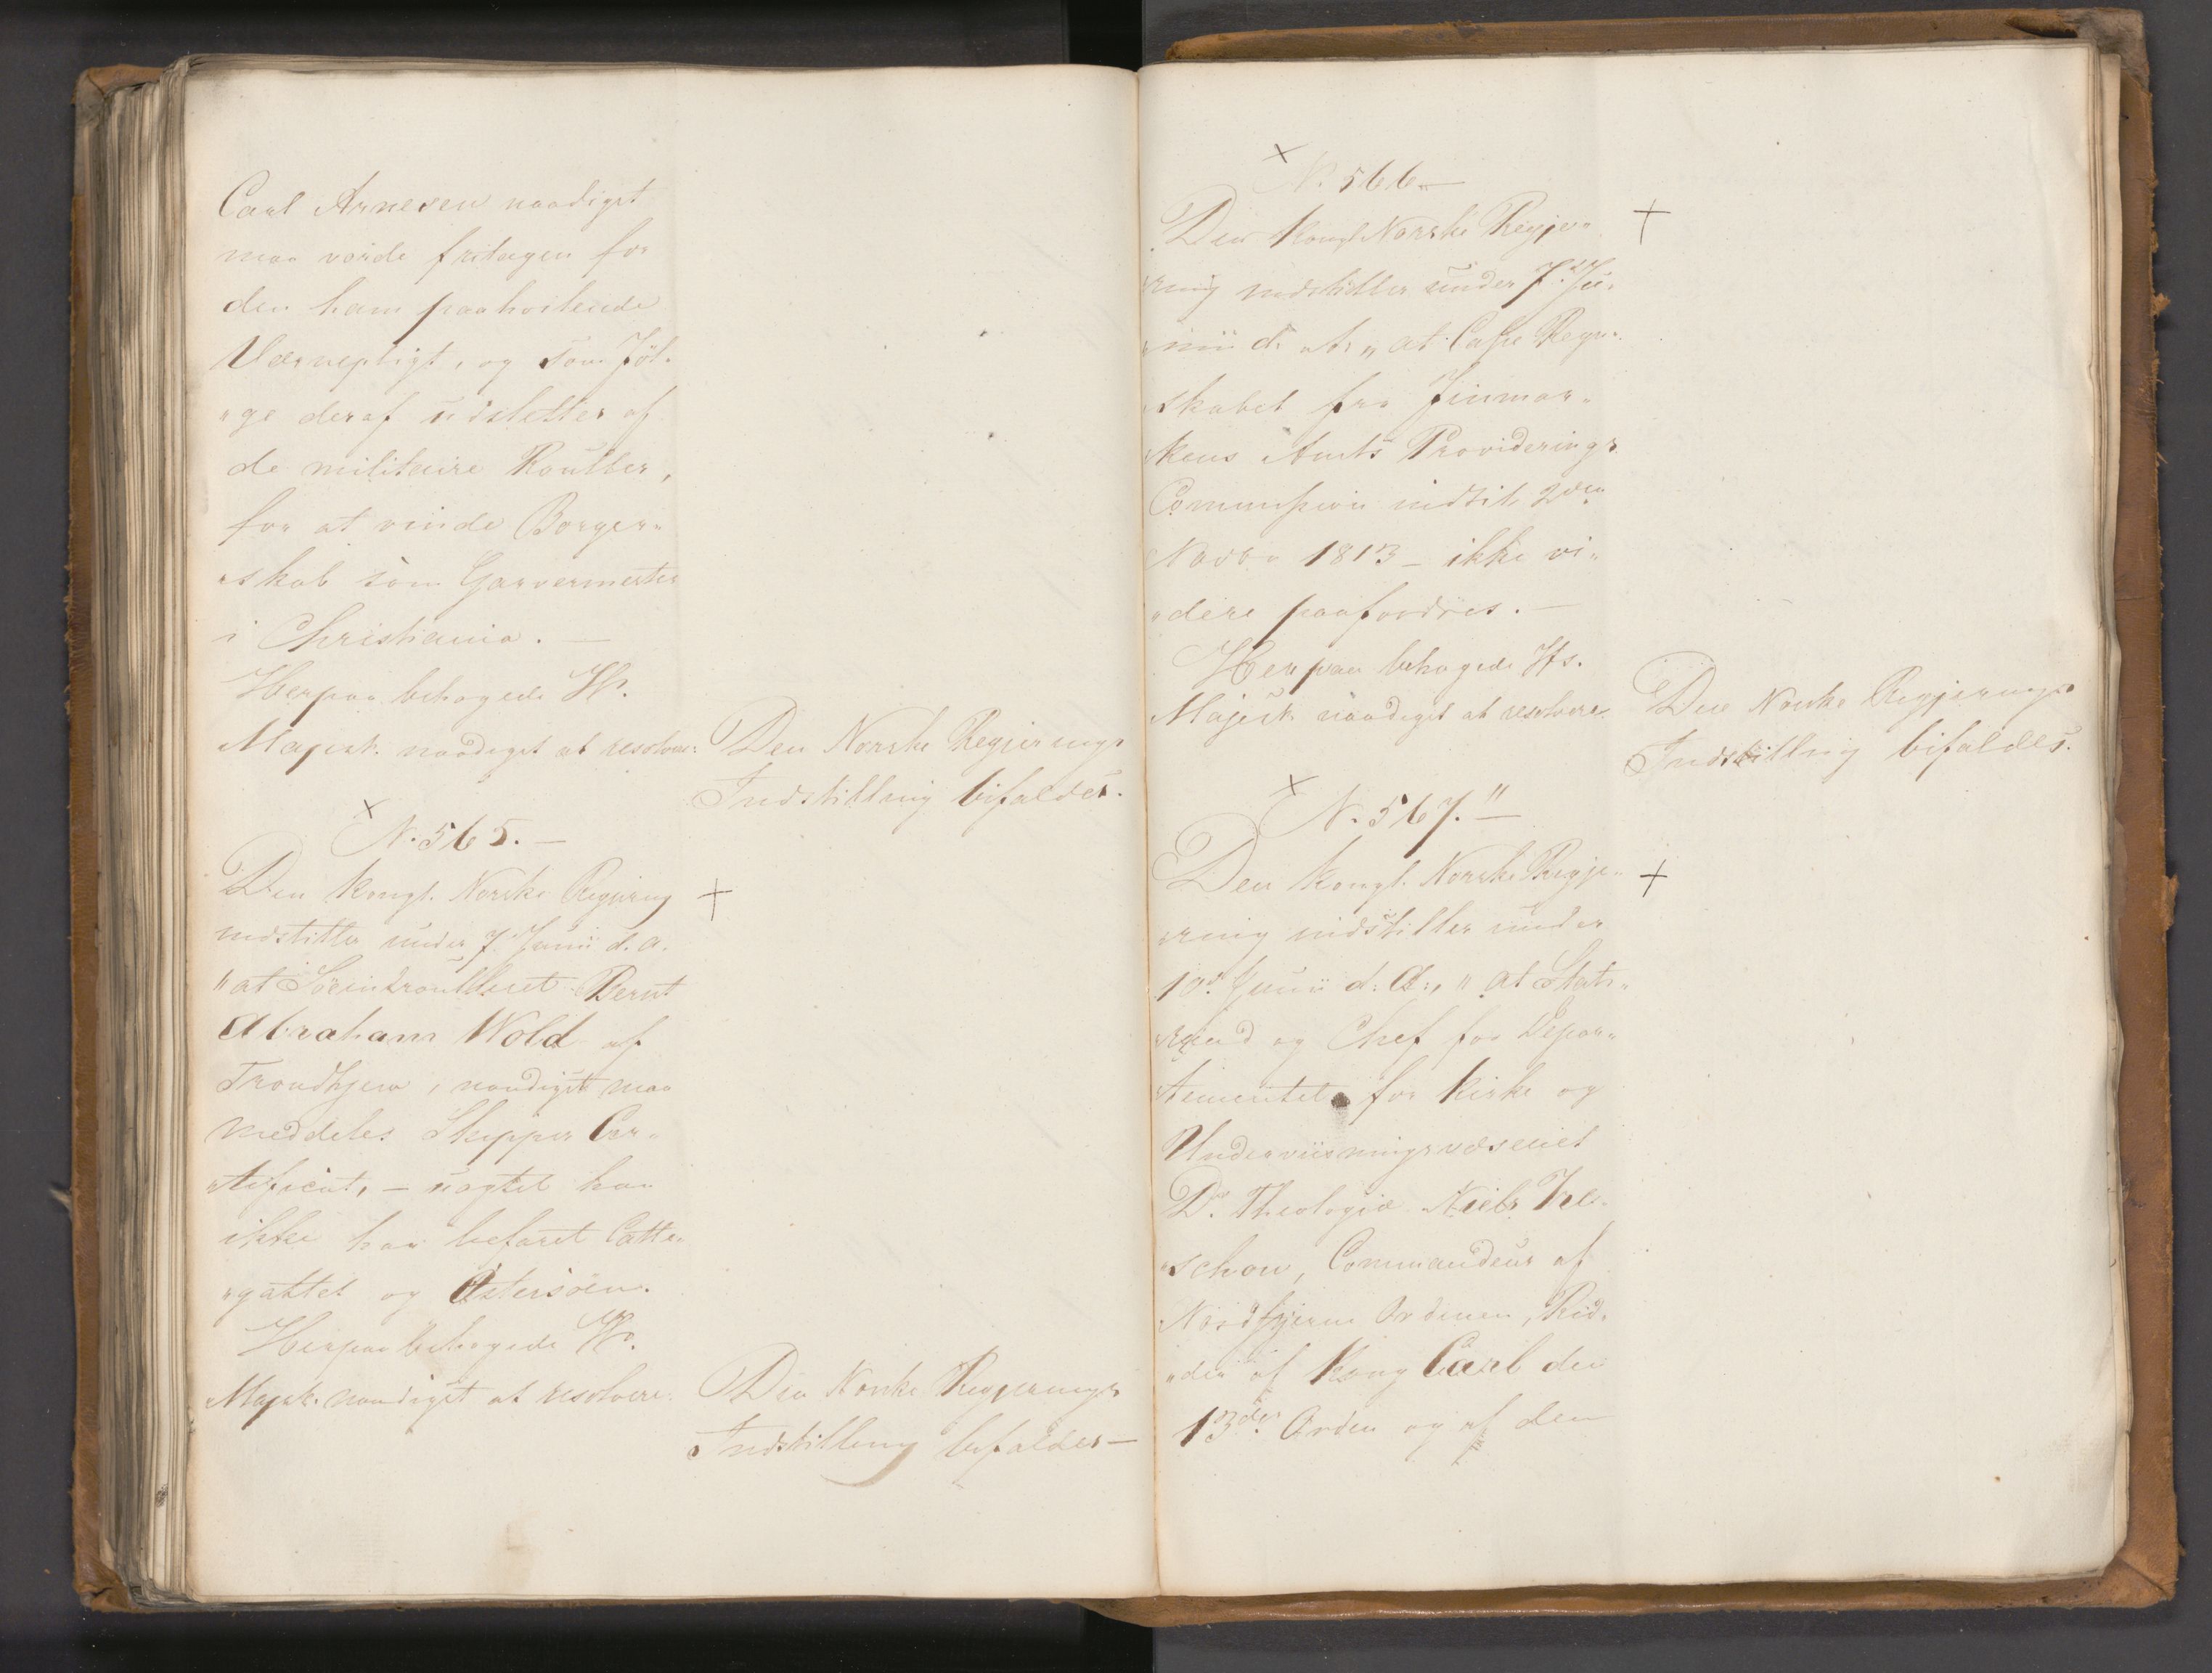 Carl Arnesen naadigst
maa vorde fritagen for
den ham paahvilende
Værnepligt, og som Føl„
„ge deraf udslettes af
de militaire Roulller,
for at vinde Borger„
„skab som Garvermester
i Christiania. —
Herpaa behagede Hs.
Majest. naadigst at resolvere:
Den Norske Regjerings
Indstilling bifaldes.
N. 565. —
Den Kongl. Norske Regjering
indstiller under 7. Junii d. a.
„at Söeindroullleret Bernt
Abraham Wold af
Trondhjem, naadigst maa
meddeles Skipper Cer„
„tificat, — uagtet han
ikke har befaret Catte„
„gattet og Østersöen.
Herpaa behagede Hs.
Majest. naadigst at resolvere:
Den Norske Regjerings
Indstilling bifaldes —
N. 566. —
Den Kongl. Norske Regje„
„ring indstiller under 7. Ju„
„nii d. A. „at Casse Regn„
„skabet fra Finmar„
„kens Amts Providerings
Commission indtil 2den
Novbr 1813 — ikke vi„
„dere paafordres. —
Herpaa behagede Hs.
Majest. naadigst at resolvere:
Den Norske Regjerings
Indstilling bifaldes.
N. 567. —
Den Kongl. Norske Regje„
„ring indstiller under
10. Junii d: A:, „at Stats„
„raad og Chef for Depar„
„tementet for Kirke og
Underviisningsvæsenet
Dr. Theologiæ Niels Tre„
„schow, Commandeur af
Nordstjerne Ordenen, Rid„
„der af Kong Carl den
13des Orden og af den